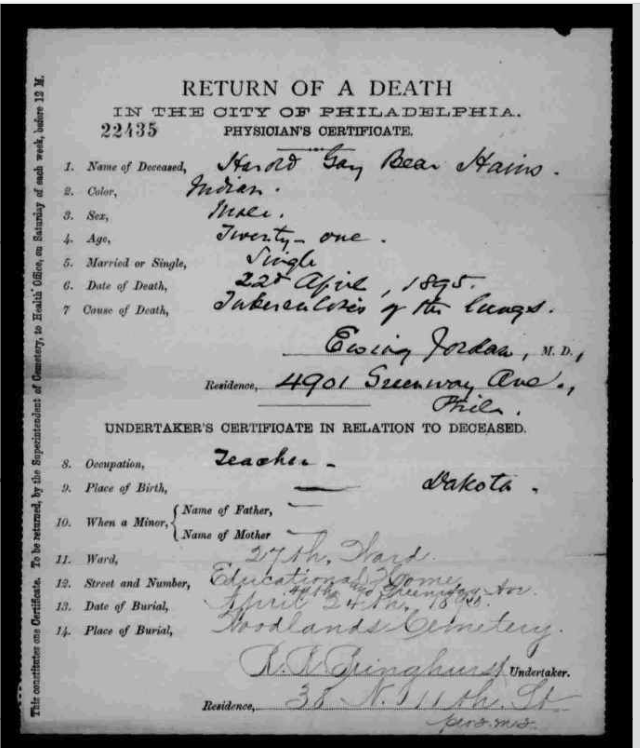 RETURN OF A DEATH
IN THE CITY OF PHILADELPHIA.
22435
PHYSICIAN'S CERTIFICATE.
1. Name of Deceased, Harold Gay Bear Hains.
2. Color, Indian.
3. Sex, Male.
4. Age, Twenty-one.
5. Married or Single, Single
6. Date of Death, 22d April, 1895.
7 Cause of Death, Tuberculosis of the lungs.
Ewing Jordan, M. D.,
Residence, 4901 Greenway Ave.,
Phila.
UNDERTAKER'S CERTIFICATE IN RELATION TO DECEASED.
8. Occupation, Teacher
9. Place of Birth, Dakota.
10. When a Minor, { Name of Father,
Name of Mother
11. Ward, 27th. Ward.
12. Street and Number, Educational Home
49th and Greenway Ave.
13. Date of Burial, April 24th, 1895.
14. Place of Burial, Woodlands Cemetery.
R. R. Bringhurst Undertaker.
Residence, 38 N. 11th. St
per
This constitutes one Certificate. To be returned, by the Superintendent of Cemetery, to Health Office, on Saturday of each week, before 12 M.